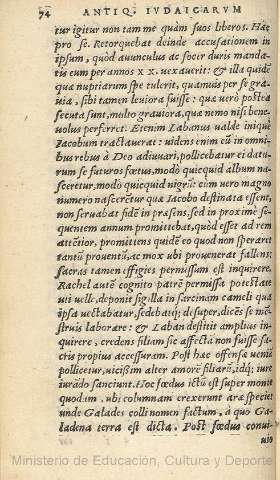 74 ANTIQ. IVDAICARVM
tur igitur non tam me quàm suos liberos. Hæc
pro se. Retorquebat deinde accusationem in
ipsum, quòd auunculus ac socer duris manda-
tis eum per annos x x. vexauerit: & illa quidē
quæ nuptiarum spe tulerit, quamuis per se gra-
uia, sibi tamen leuiora fuisse: quæ verò postea
secuta sunt, multo grauiora, quæ nemo nisi bene-
uolus perferret. Etenim Labanus valde iniquè
Iacobum tractauerat: vidēns enim eū in omni-
bus rebus à Deo adiuuari, pollicebatur ei datu-
rum se futuros fœtus, modò quicquid album na-
sceretur, modò quicquid nigrū: cùm vero magno
numero nascerētur quæ Iacobo destinata essent,
non seruabat fidē in præsens, sed in proximè se-
quentem annum promittebat, quòd esset ad rem
attētior, promittens quidē eo quod non speraret
tantū prouentū, ac mox vbi prouenerat fallens:
sacras tamen effigies permissum est inquirere.
Rachel autē cognito patrē permissa potestate
vti velle, deponit sigilla in sarcinam cameli quæ
ipsa vectabatur, sedebatq́; desuper, dicēs se mē-
struis laborare: & Laban destitit amplius in-
quirere, credens filiam sic affectā non fuisse sa-
cris propius accessuram. Post hæc offensæ veniā
pollicetur, vicissim alter amorē filiarū, idq́; iure
iurādo sanciunt. Hoc fœdus ictū est super monte
quodam, vbi columnam erexerunt aræ specie:
vnde Galades colli nomen factum, à quo Ga-
ladena terra est dicta. Post fœdus conui-
uio
Ministerio de Educación, Cultura y Deporte